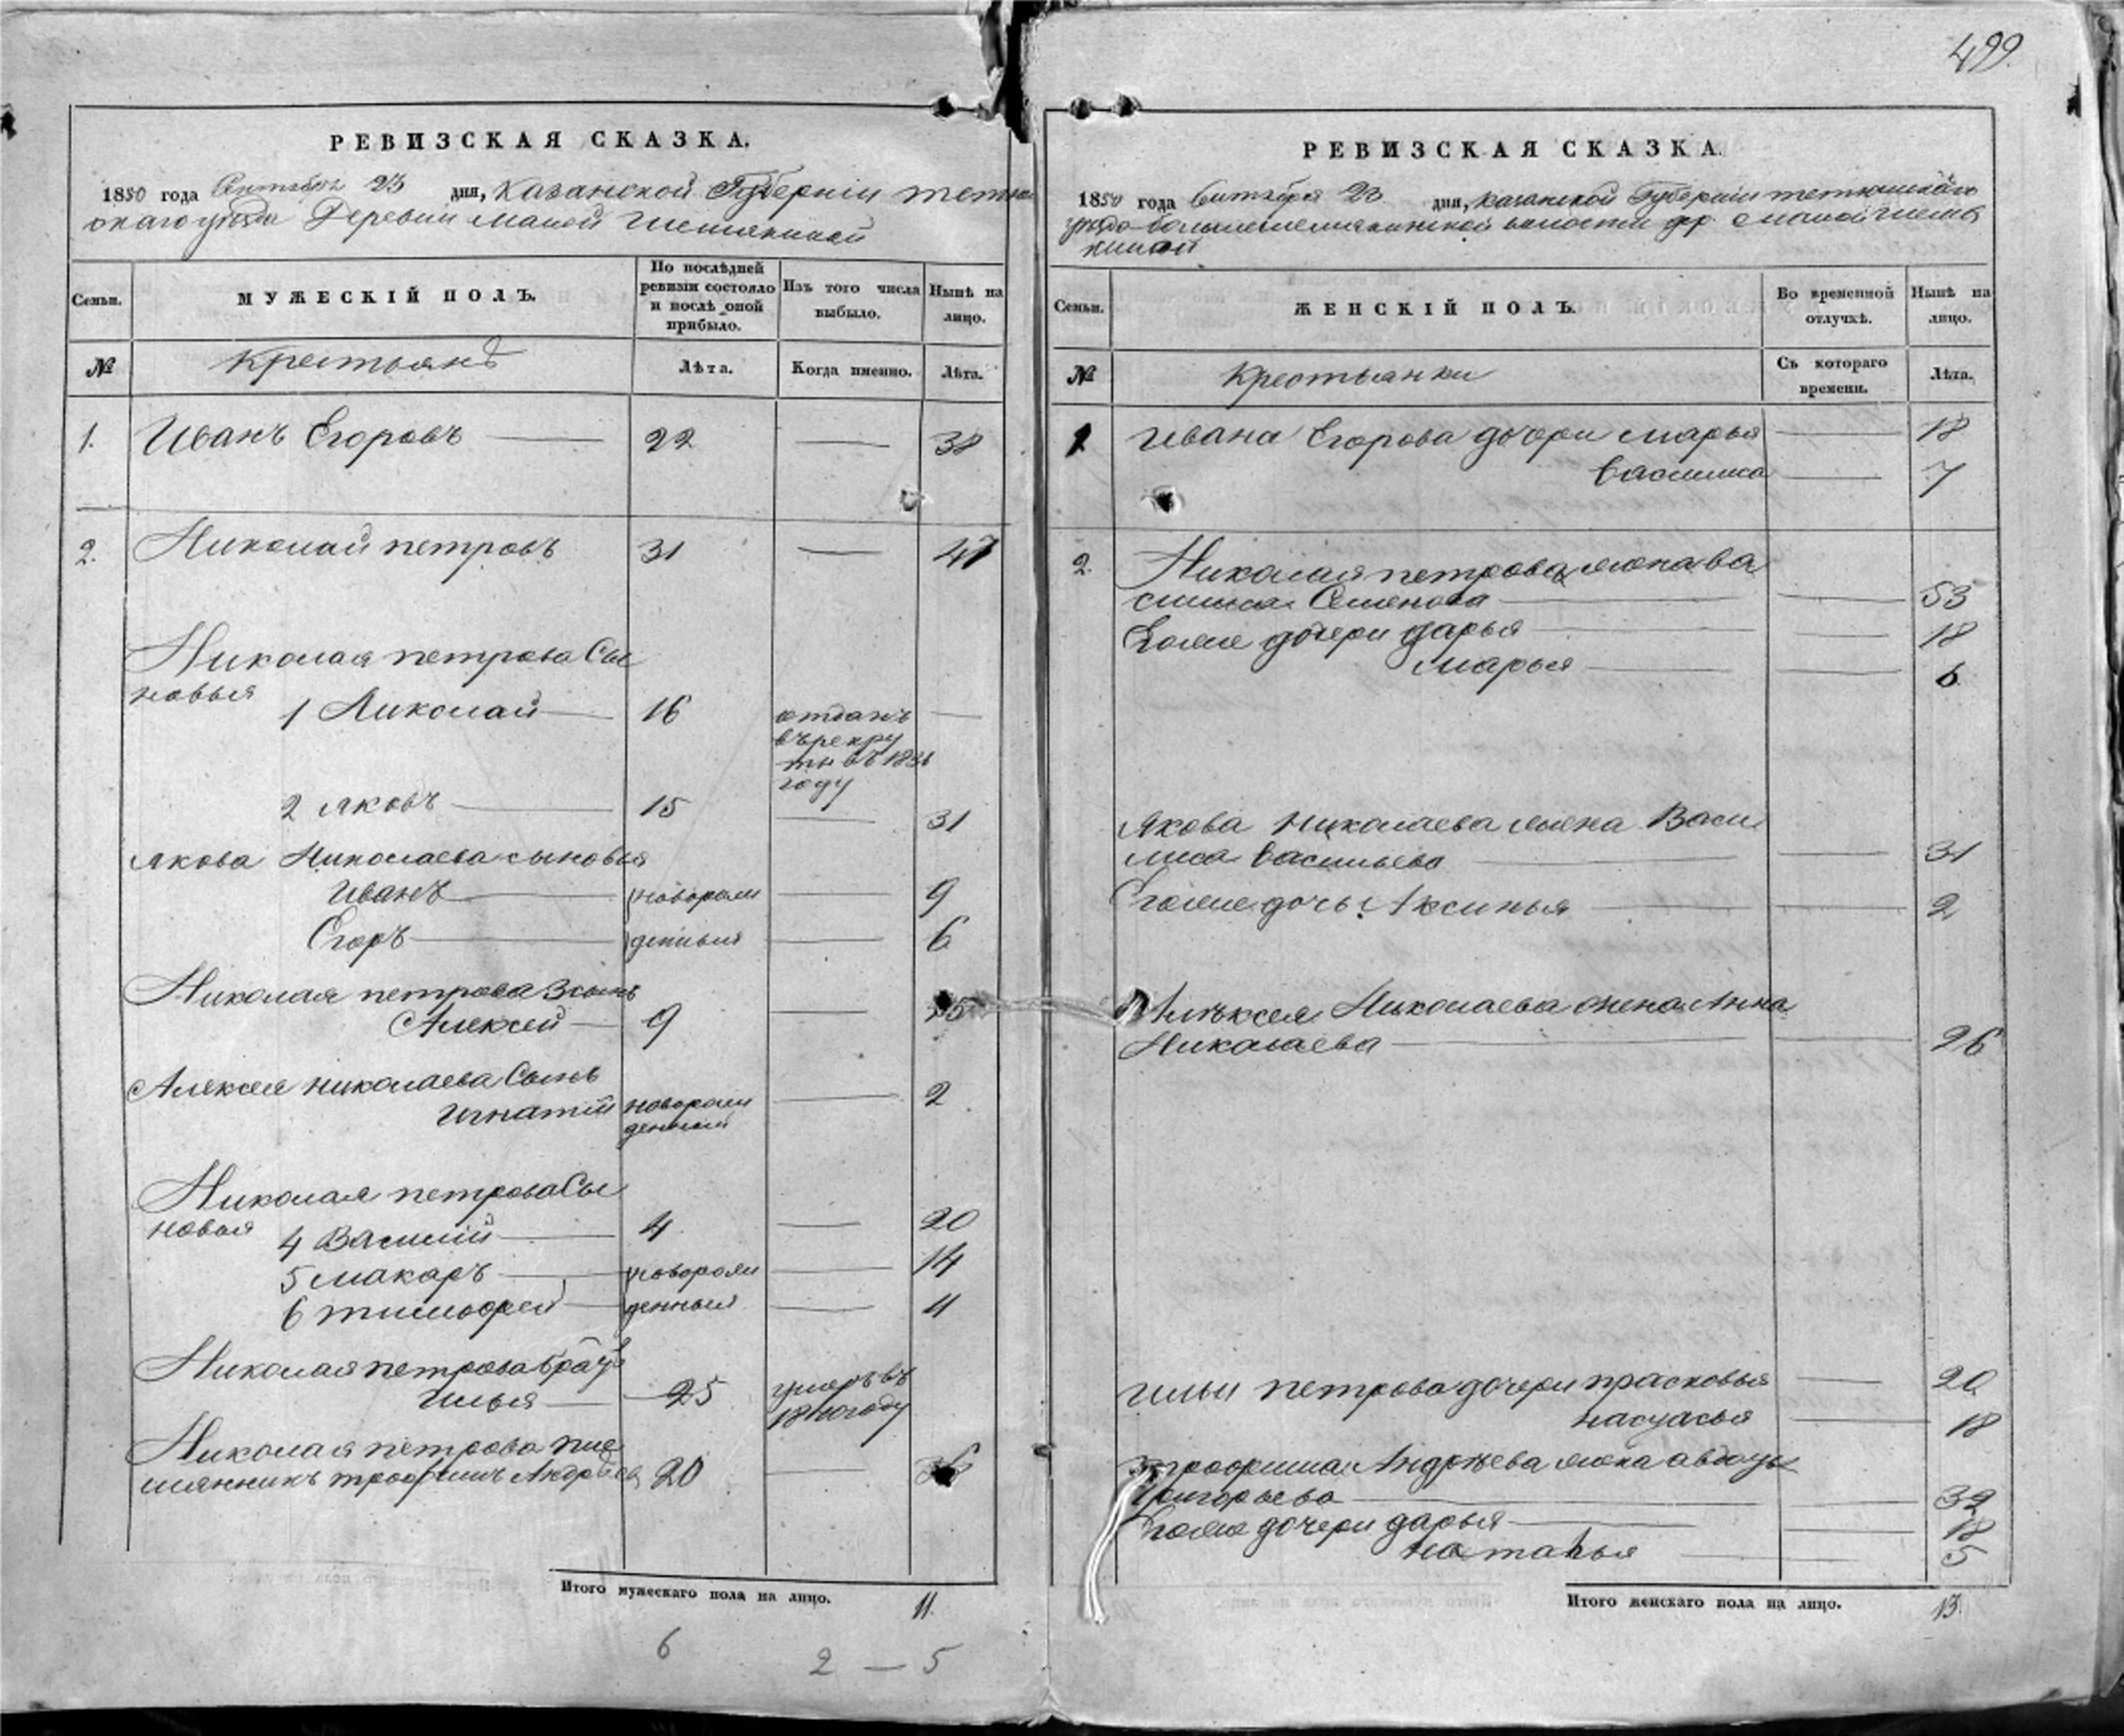 499.
РЕВИЗСКАЯ СКАЗКА.
1850 года Сентября 23 дня, Казанской Губернiи тетю
скаго уезда Деревни Малой Шемякиной
Семьи. МУЖЕСКIЙ ПОЛЪ. По послѣдней ревизiи состояло и послѣ оной прибыло. Изъ того числа выбыло. Нынѣ на лицо.
№ Крестьянъ Лѣта. Когда именно. Лѣта.
1. Иванъ Егоровъ 22 — 38
2. Николай петровъ 31 — 47
Николая петрова Сы
новья
1 Николай 16 отданъ —
въ рекру
ты въ
году
2 яковъ 15 — 31
якова Николаева сыновья
Иванъ новорож — 9
Егоръ денныя — 6
Николая петрова 3 сынъ
Алексей 9 — 25
Алексея николаева Сынъ
Игнатiй новорож — 2
денный
Николая петрова Сы
новья
4 Василiй 4 — 20
5 макаръ новорож — 14
6 тимофей денныя — 11
Николая петрова братъ
Илья 25 умеръ въ
1840 году
Николая петрова пле
мянникъ трофимъ Андреев 20 — 36
Итого мужескаго пола на лицо. 11.
6
2 — 5
РЕВИЗСКАЯ СКАЗКА.
1850 года Сентября 23 дня, казанской Губернiи тетюшскаго
уезда большешемякинской волости др. малой шемя
киной
Семьи. ЖЕНСКIЙ ПОЛЪ. Во временной отлучкѣ. Нынѣ на лицо.
№ Крестьянки Съ котораго времени. Лѣта.
1 Ивана Егорова дочери марья — 18
Василиса — 7
2. Николая петрова жена ва
силиса Семенова — 53
Егоже дочери дарья — 18
марья — 6
якова николаева жена Васи
лиса Васильева — 31
Егоже дочь Аксинья — 2
Алѣксея Николаева жена Анна
Николаева — 26
Ильи петрова дочери прасковья — 20
настасья — 18
трофима Андрѣева жена авдотья
Григорьева — 39
Егоже дочери дарья — 18
наталья — 5
Итого женскаго пола на лицо. 13.